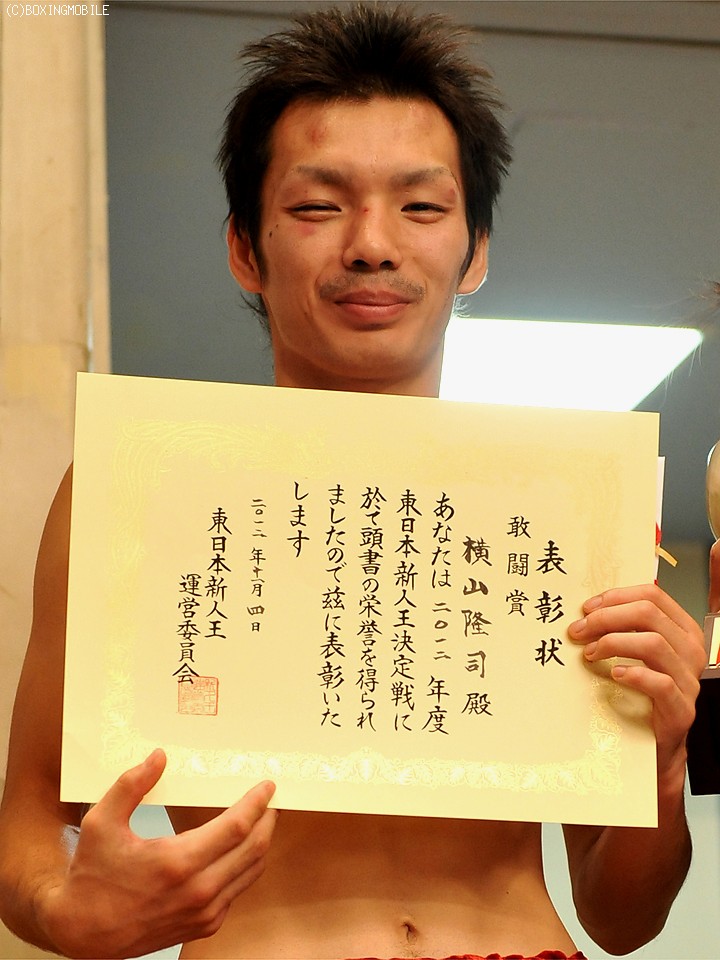 (C)BOXINGMOBILE
表彰状
敢闘賞
横山隆司殿
あなたは二〇一二年度
東日本新人王決定戦に
於て頭書の栄誉を得られ
ましたので茲に表彰いた
します
二〇一二年十一月四日
東日本新人王
運営委員会